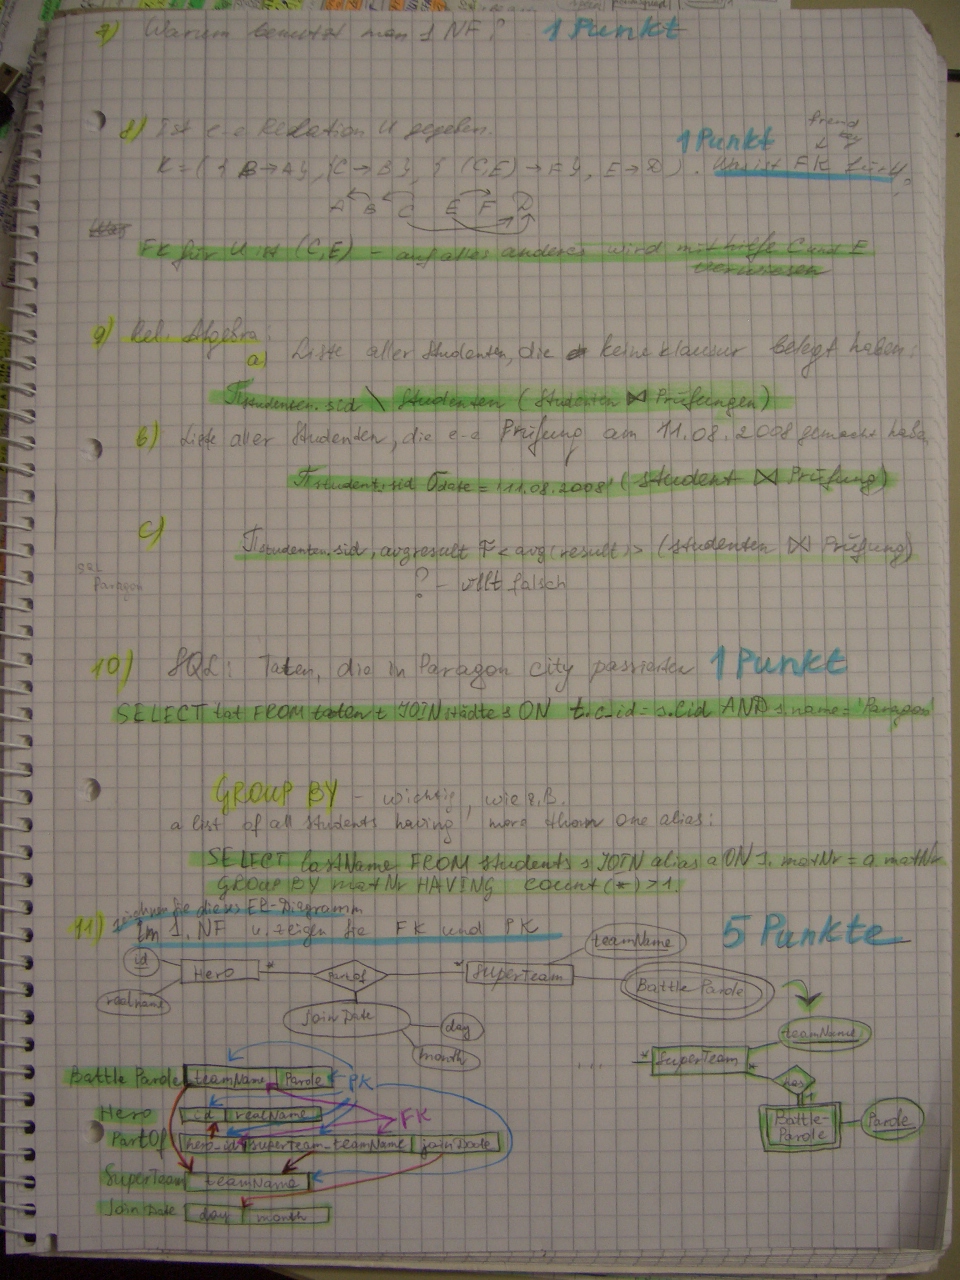 7) Warum benutzt man 1 NF? 1 Punkt
8) Ist e-e Relation U gegeben. fremd
1 Punkt
K = ( { B → A }, { C → B }, { (C,E) → F }, E → D ). Was ist FK für U?
A B C E F D
FK für U ist (C,E) – auf alles anderes wird mit hilfe C und E
verwiesen
9) Rel. Algebra:
a) Liste aller Studenten, die keine klausur belegt haben:
π studenten.sid \ studenten (Studenten ⋈ Prüfungen)
b) Liste aller Studenten, die e-e Prüfung am 11.08.2008 gemacht habe
π student.sid σ date = '11.08.2008' (Student ⋈ Prüfung)
c) π studenten.sid, avgresult F < avg(result) > (Studenten ⋈ Prüfung)
Paragon
? – vllt falsch
10) SQL: Taten, die in Paragon city passierten 1 Punkt
SELECT tat FROM taten t JOIN städte s ON t.c_id = s.cid AND s.name = 'Paragon'
GROUP BY – wichtig, wie z.B.
a list of all students having more than one alias:
SELECT lastName FROM students s JOIN alias a ON s.matNr = a.matNr
GROUP BY matNr HAVING count(*) > 1.
zeichnen Sie dieses ER-Diagramm
11) im 1.NF u. zeigen Sie FK und PK 5 Punkte
teamName
id
Hero * PartOf * SuperTeam
realname
Battle Parole
JoinDate
day
month
teamName
... * SuperTeam *
has
1
Battle-
Parole
Parole
Battle Parole teamName Parole PK
Hero id realName FK
PartOf hero_id superteam_teamName joinDate
SuperTeam teamName
JoinDate day month